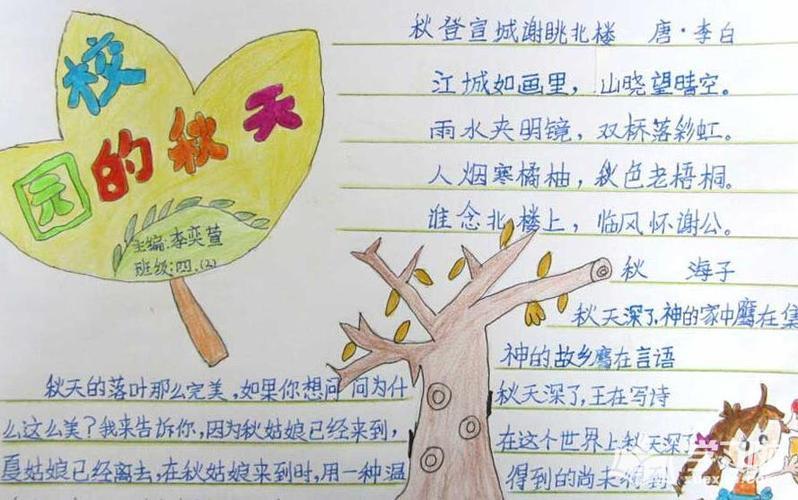 校
园的秋天
主编:李奕萱
班级:四.(2)
秋登宣城谢眺北楼 唐·李白
江城如画里，山晓望晴空。
雨水夹明镜，双桥落彩虹。
人烟寒橘柚，秋色老梧桐。
谁念北楼上，临风怀谢公。
秋 海子
秋天深了，神的家中鹰在集
神的故乡鹰在言语
秋天深了，王在写诗
在这个世界上秋天深了
得到的尚未得到
秋天的落叶那么完美，如果你想问问为什
么这么美？我来告诉你，因为秋姑娘已经来到，
夏姑娘已经离去，在秋姑娘来到时，用一种温